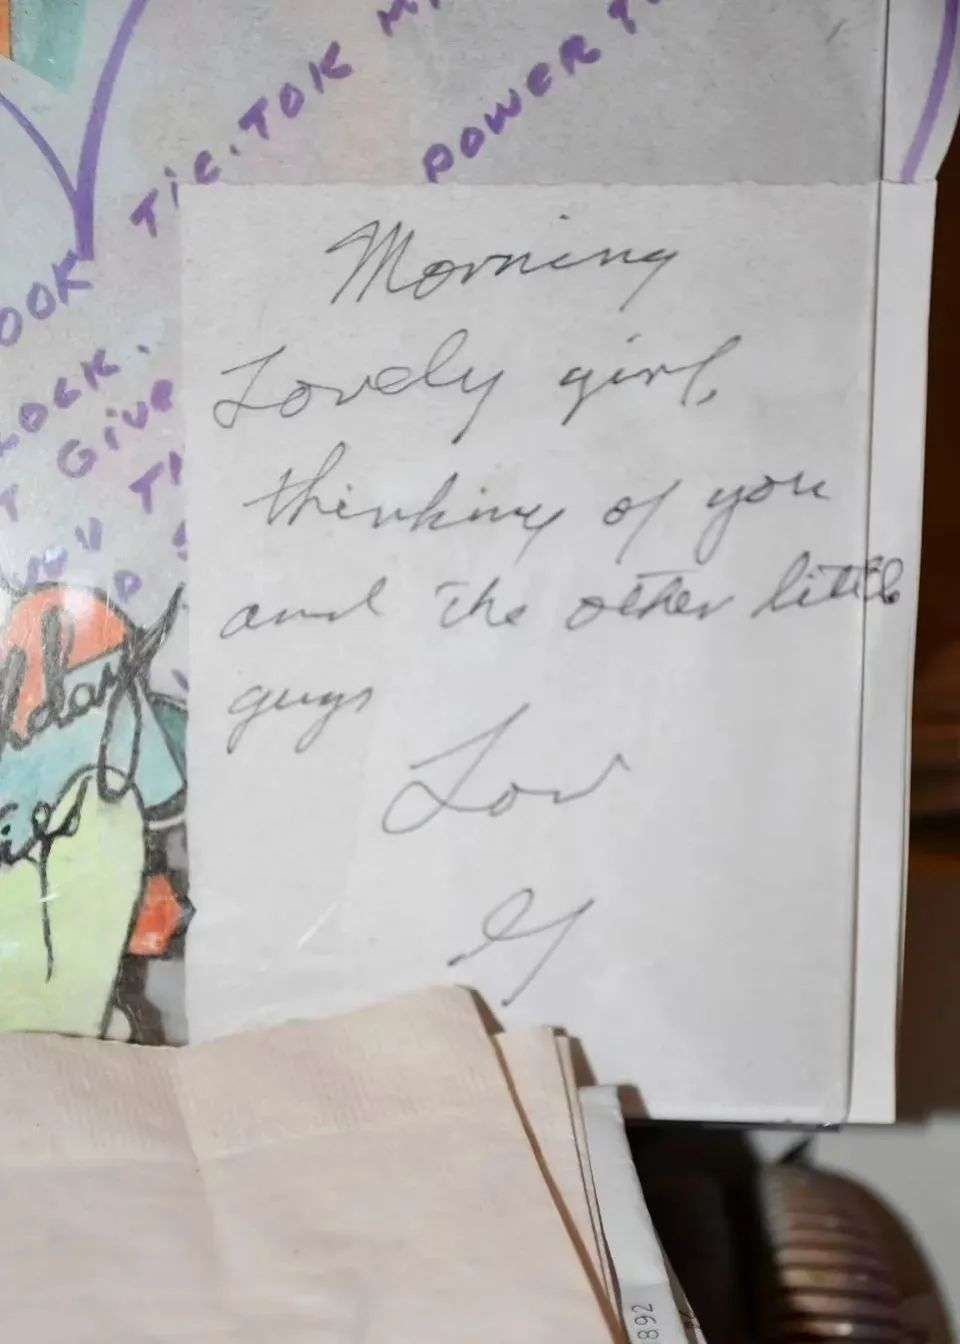 TIC.TOK
POWER
OOK
OCK.
Give
Morning
Lovely girl,
thinking of you
and the other little
guys
Lov
G
892